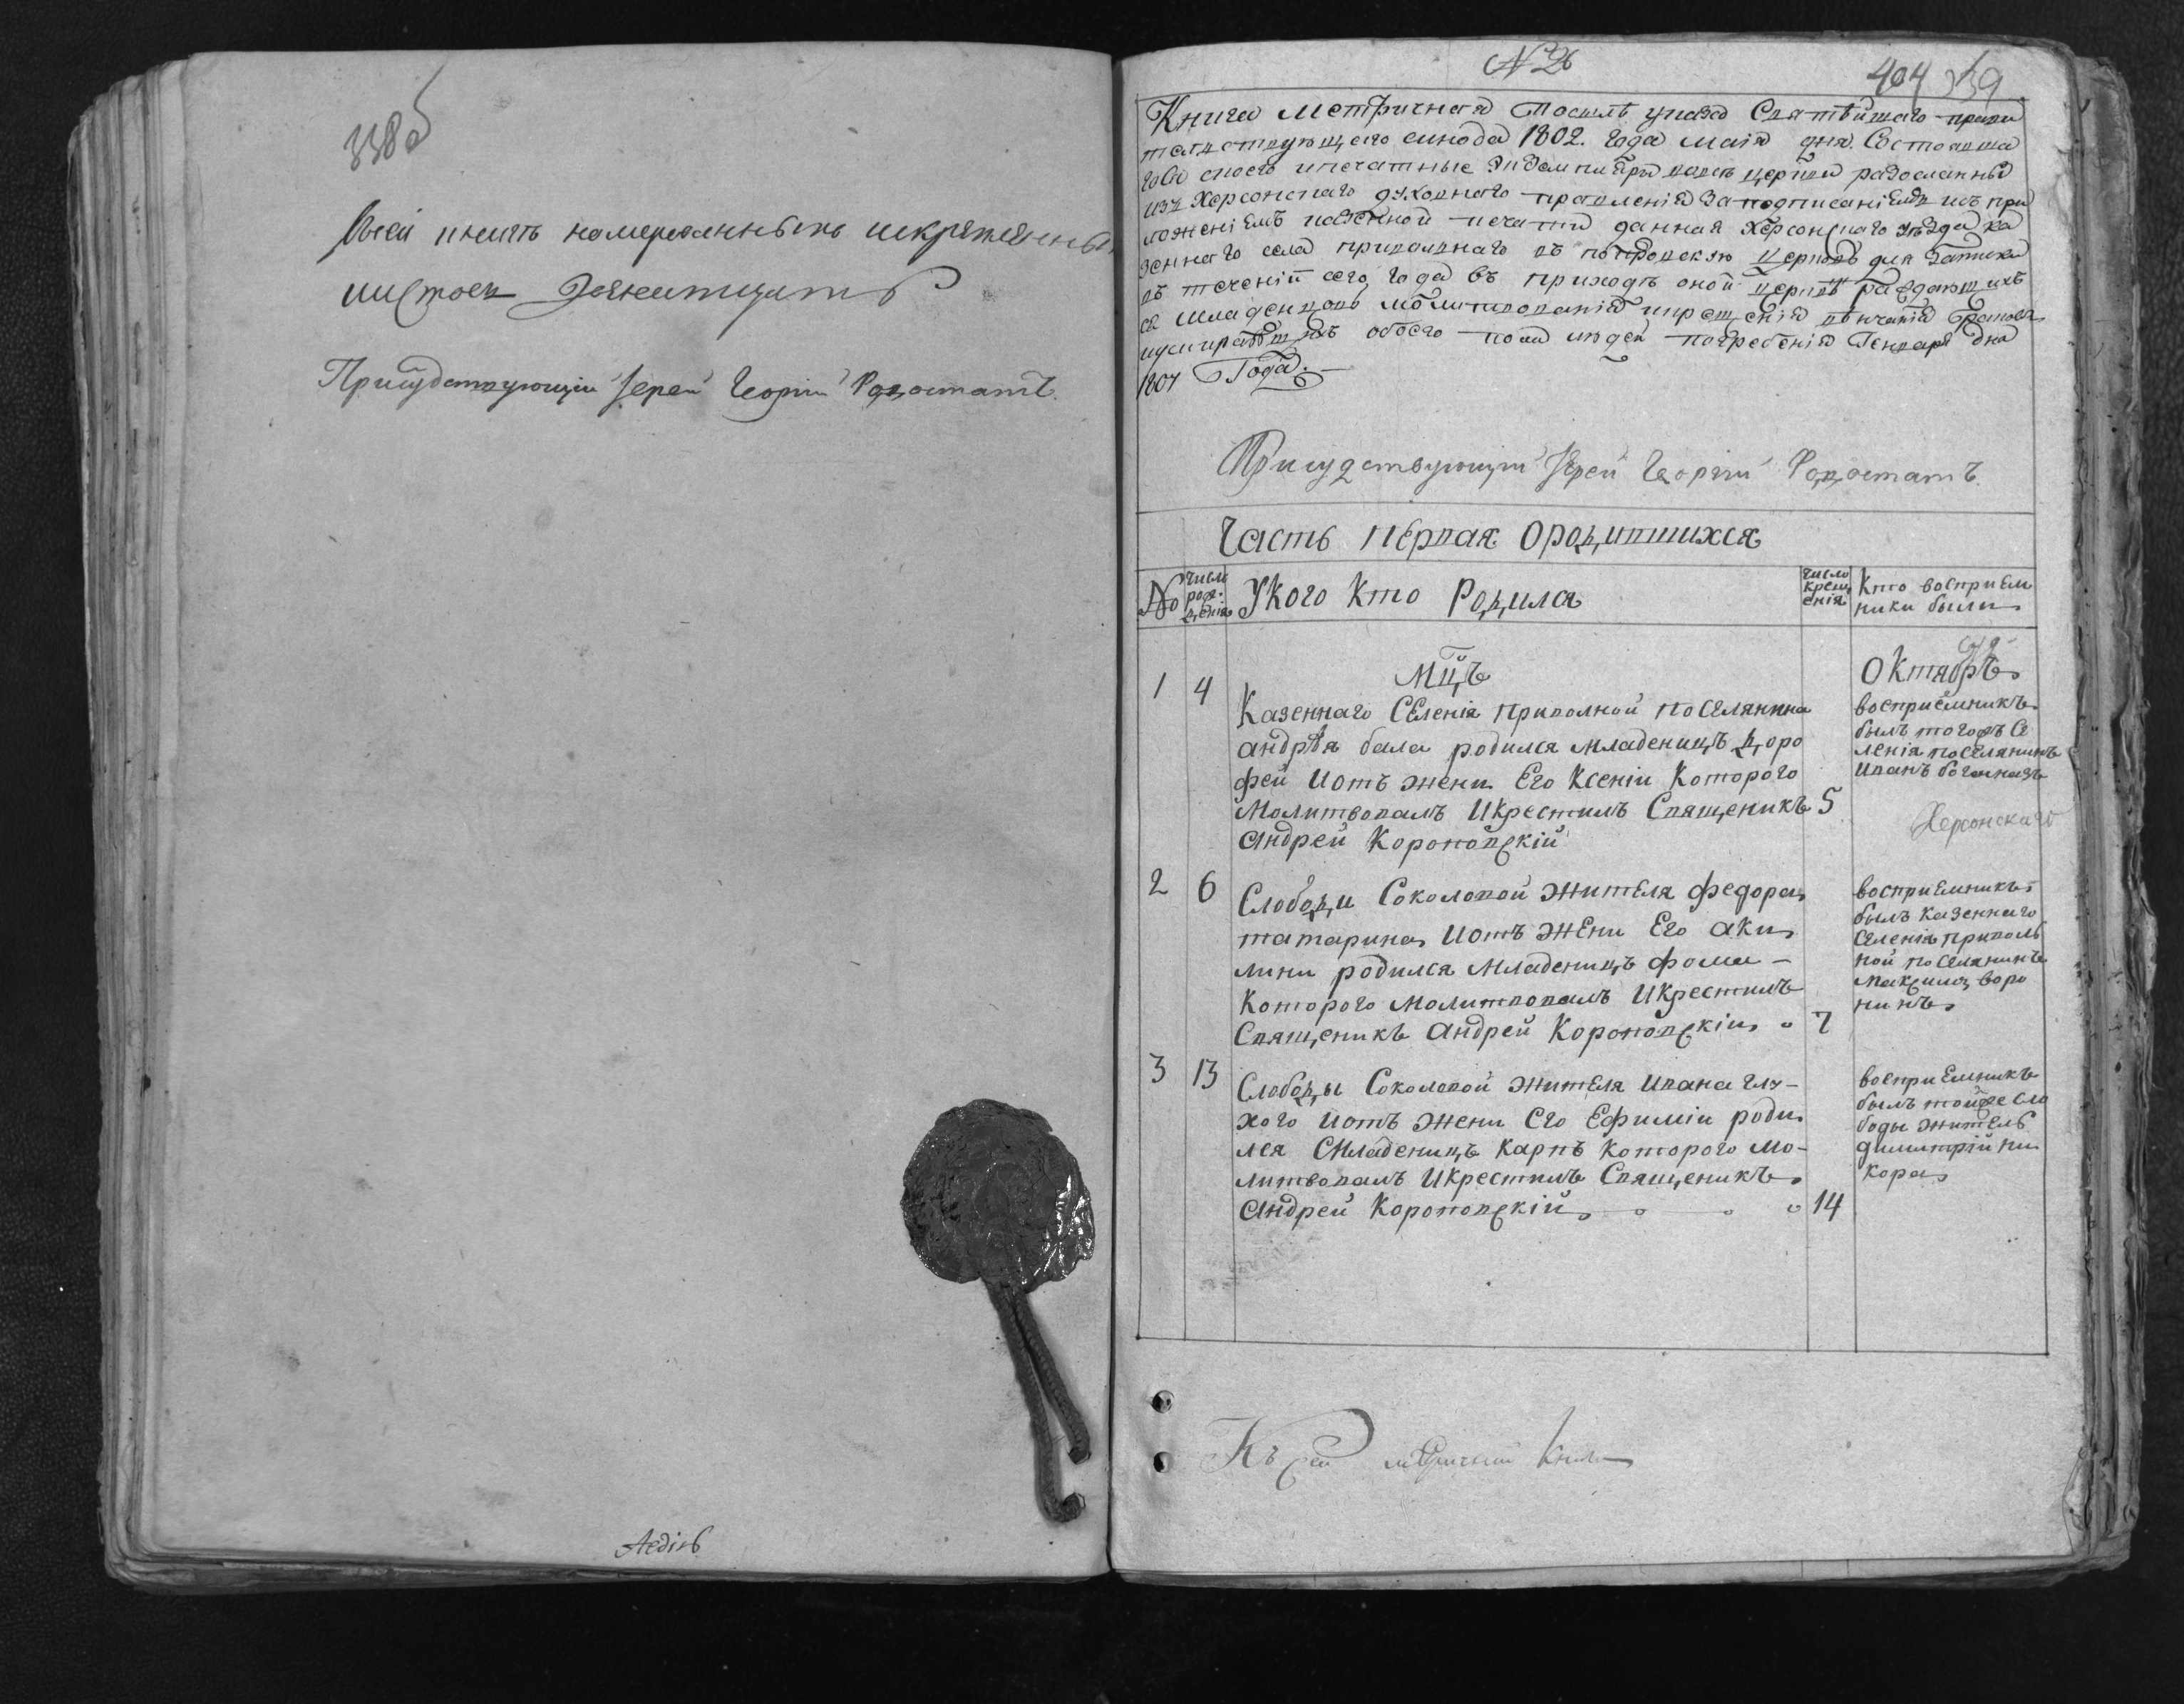 338об
всей книги номерованныхъ искрепленныхъ
листовъ девятнадцать
Присудствующій Іерей Георгій Родостатъ
№ 26
404 339
Книга Метричная Посилѣ указа Святѣйшаго прави
телствующаго синода 1802. Года маія дня. Состоявша
гося
изъ Херсонскаго духовнаго правленія За подписаніемъ ипри
ложеніемъ казенной печати данная Херсонскаго уѣзда ка
зеннаго села Приволнаго въ покровскую церковь для Записки
въ теченіи сего года въ приходѣ оной церкви раждающихъ
ся младенцовъ молитвованія икрещенія вѣнчанія браковъ
иумирающихъ обоего пола людей погребенія Генваря дня
1804 Года
Присудствующій Іерей Георгій Родостатъ
Часть Первая Ородившихся
№ Число рождения Укого Кто Родился число крещенія Кто восприем
ники были
Мцъ Октябръ
1 4 Казеннаго Селенія Приволной поселянина
андрѣя бала родился младеницъ Доро
фей Иотъ жени Его Ксеніи Которого
Молитвовалъ Икрестилъ Священикъ 5
Андрей Короповскій
восприемникъ
былъ тогожъ Се
ленія поселянинъ
Иванъ
Херсонскаго
2 6 Слободи Соколовой жителя федора
татарина Иотъ жени Его аки
лини родился младеницъ фома -
Которого молитвовалъ Икрестилъ
Священикъ Андрей Короповскій 7
восприемникъ
былъ казеннаго
селенія приволь
ной поселянинъ
максимъ воро
нинъ
3 13 Слободы Соколовой жителя Ивана глу-
хого Иотъ жени Его Ефиміи роди
лся Младеницъ Карпъ Которого мо-
литвовалъ Икрестилъ Священикъ
Андрей Короповскій 14
восприемникъ
былъ тойже сло
боды житель
димитрій ни
кора
Къ сей метричной книге